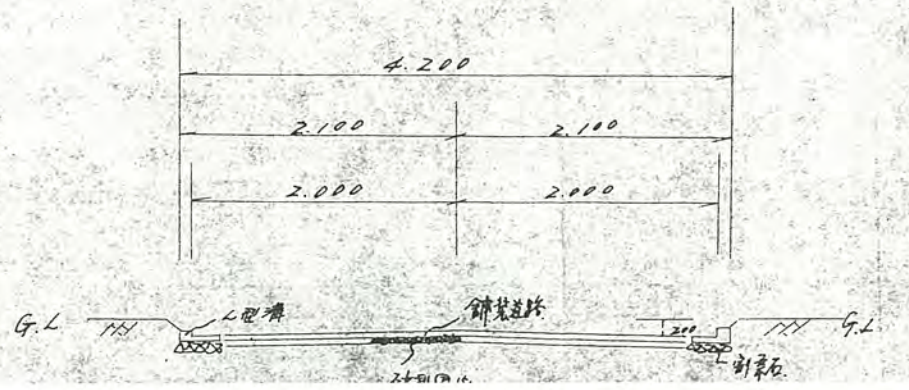 4.200
2.100 2.100
2.000 2.000
G.L L型溝 舗装道路 200 G.L
割栗石